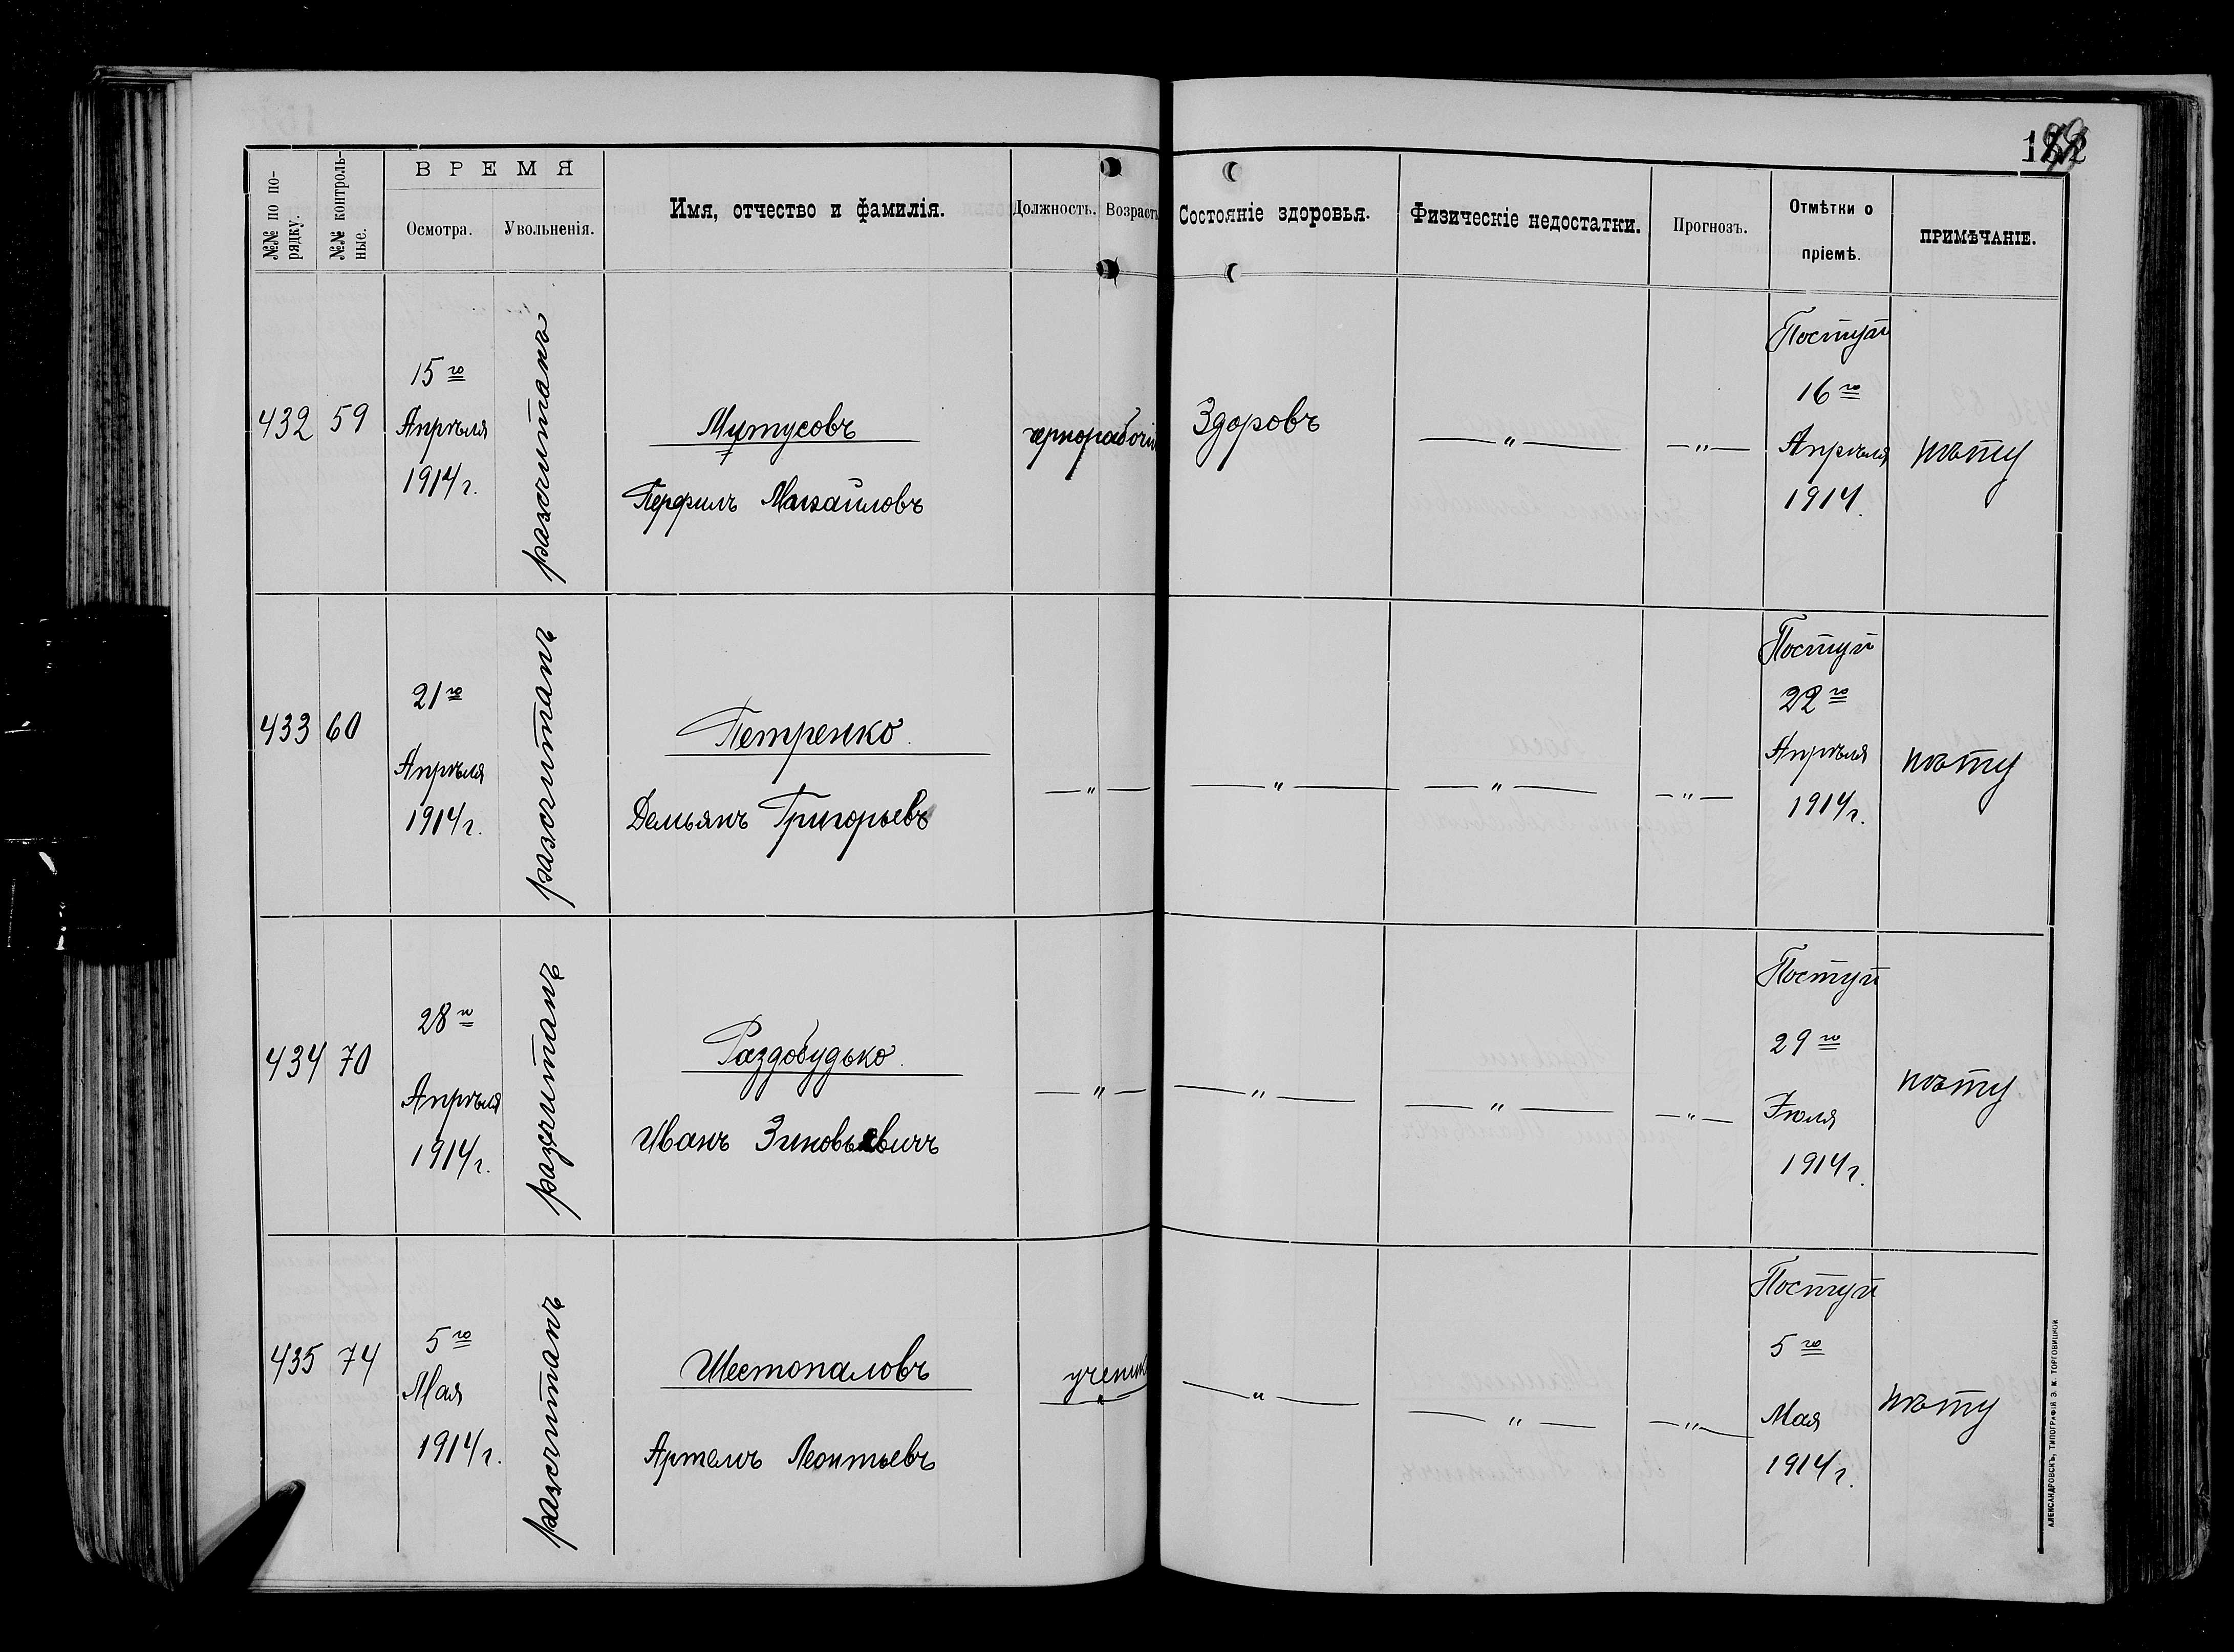 №№ по порядку.
№№ контрольные.
ВРЕМЯ
Осмотра.
Увольненія.
Имя, отчество и фамилія.
Должность.
Возрастъ
Состояніе здоровья.
Физическіе недостатки.
Прогнозъ.
Отмѣтки о
пріемѣ.
ПРИМѢЧАНІЕ.
432
59
15го
Апрѣля
1914г.
разсчитанъ
Мутусовъ
Перфилъ Михайловъ
чернорабочій
Здоровъ
— „ —
— „ —
Поступ
16го
Апрѣля
1914.
нѣту
433
60
21го
Апрѣля
1914г.
разсчитанъ
Петренко.
Демьянъ Григорьевъ
— „ —
— „ —
— „ —
— „ —
Поступ
22го
Апрѣля
1914г.
нѣту
434
70
28го
Апрѣля
1914г.
разсчитанъ
Раздобудько.
Иванъ Зиновьевичъ
— „ —
— „ —
— „ —
— „ —
Поступ
29го
Іюля
1914г.
нѣту
435
74
5го
Мая
1914г.
разсчитанъ
Шестопаловъ
Артемъ Леонтьевъ
ученик
— „ —
— „ —
— „ —
— „ —
Поступ
5го
Мая
1914г.
нѣту
АЛЕКСАНДРОВСКЪ, ТИПОГРАФІЯ Э. М. ТОРГОВИЦКОЙ